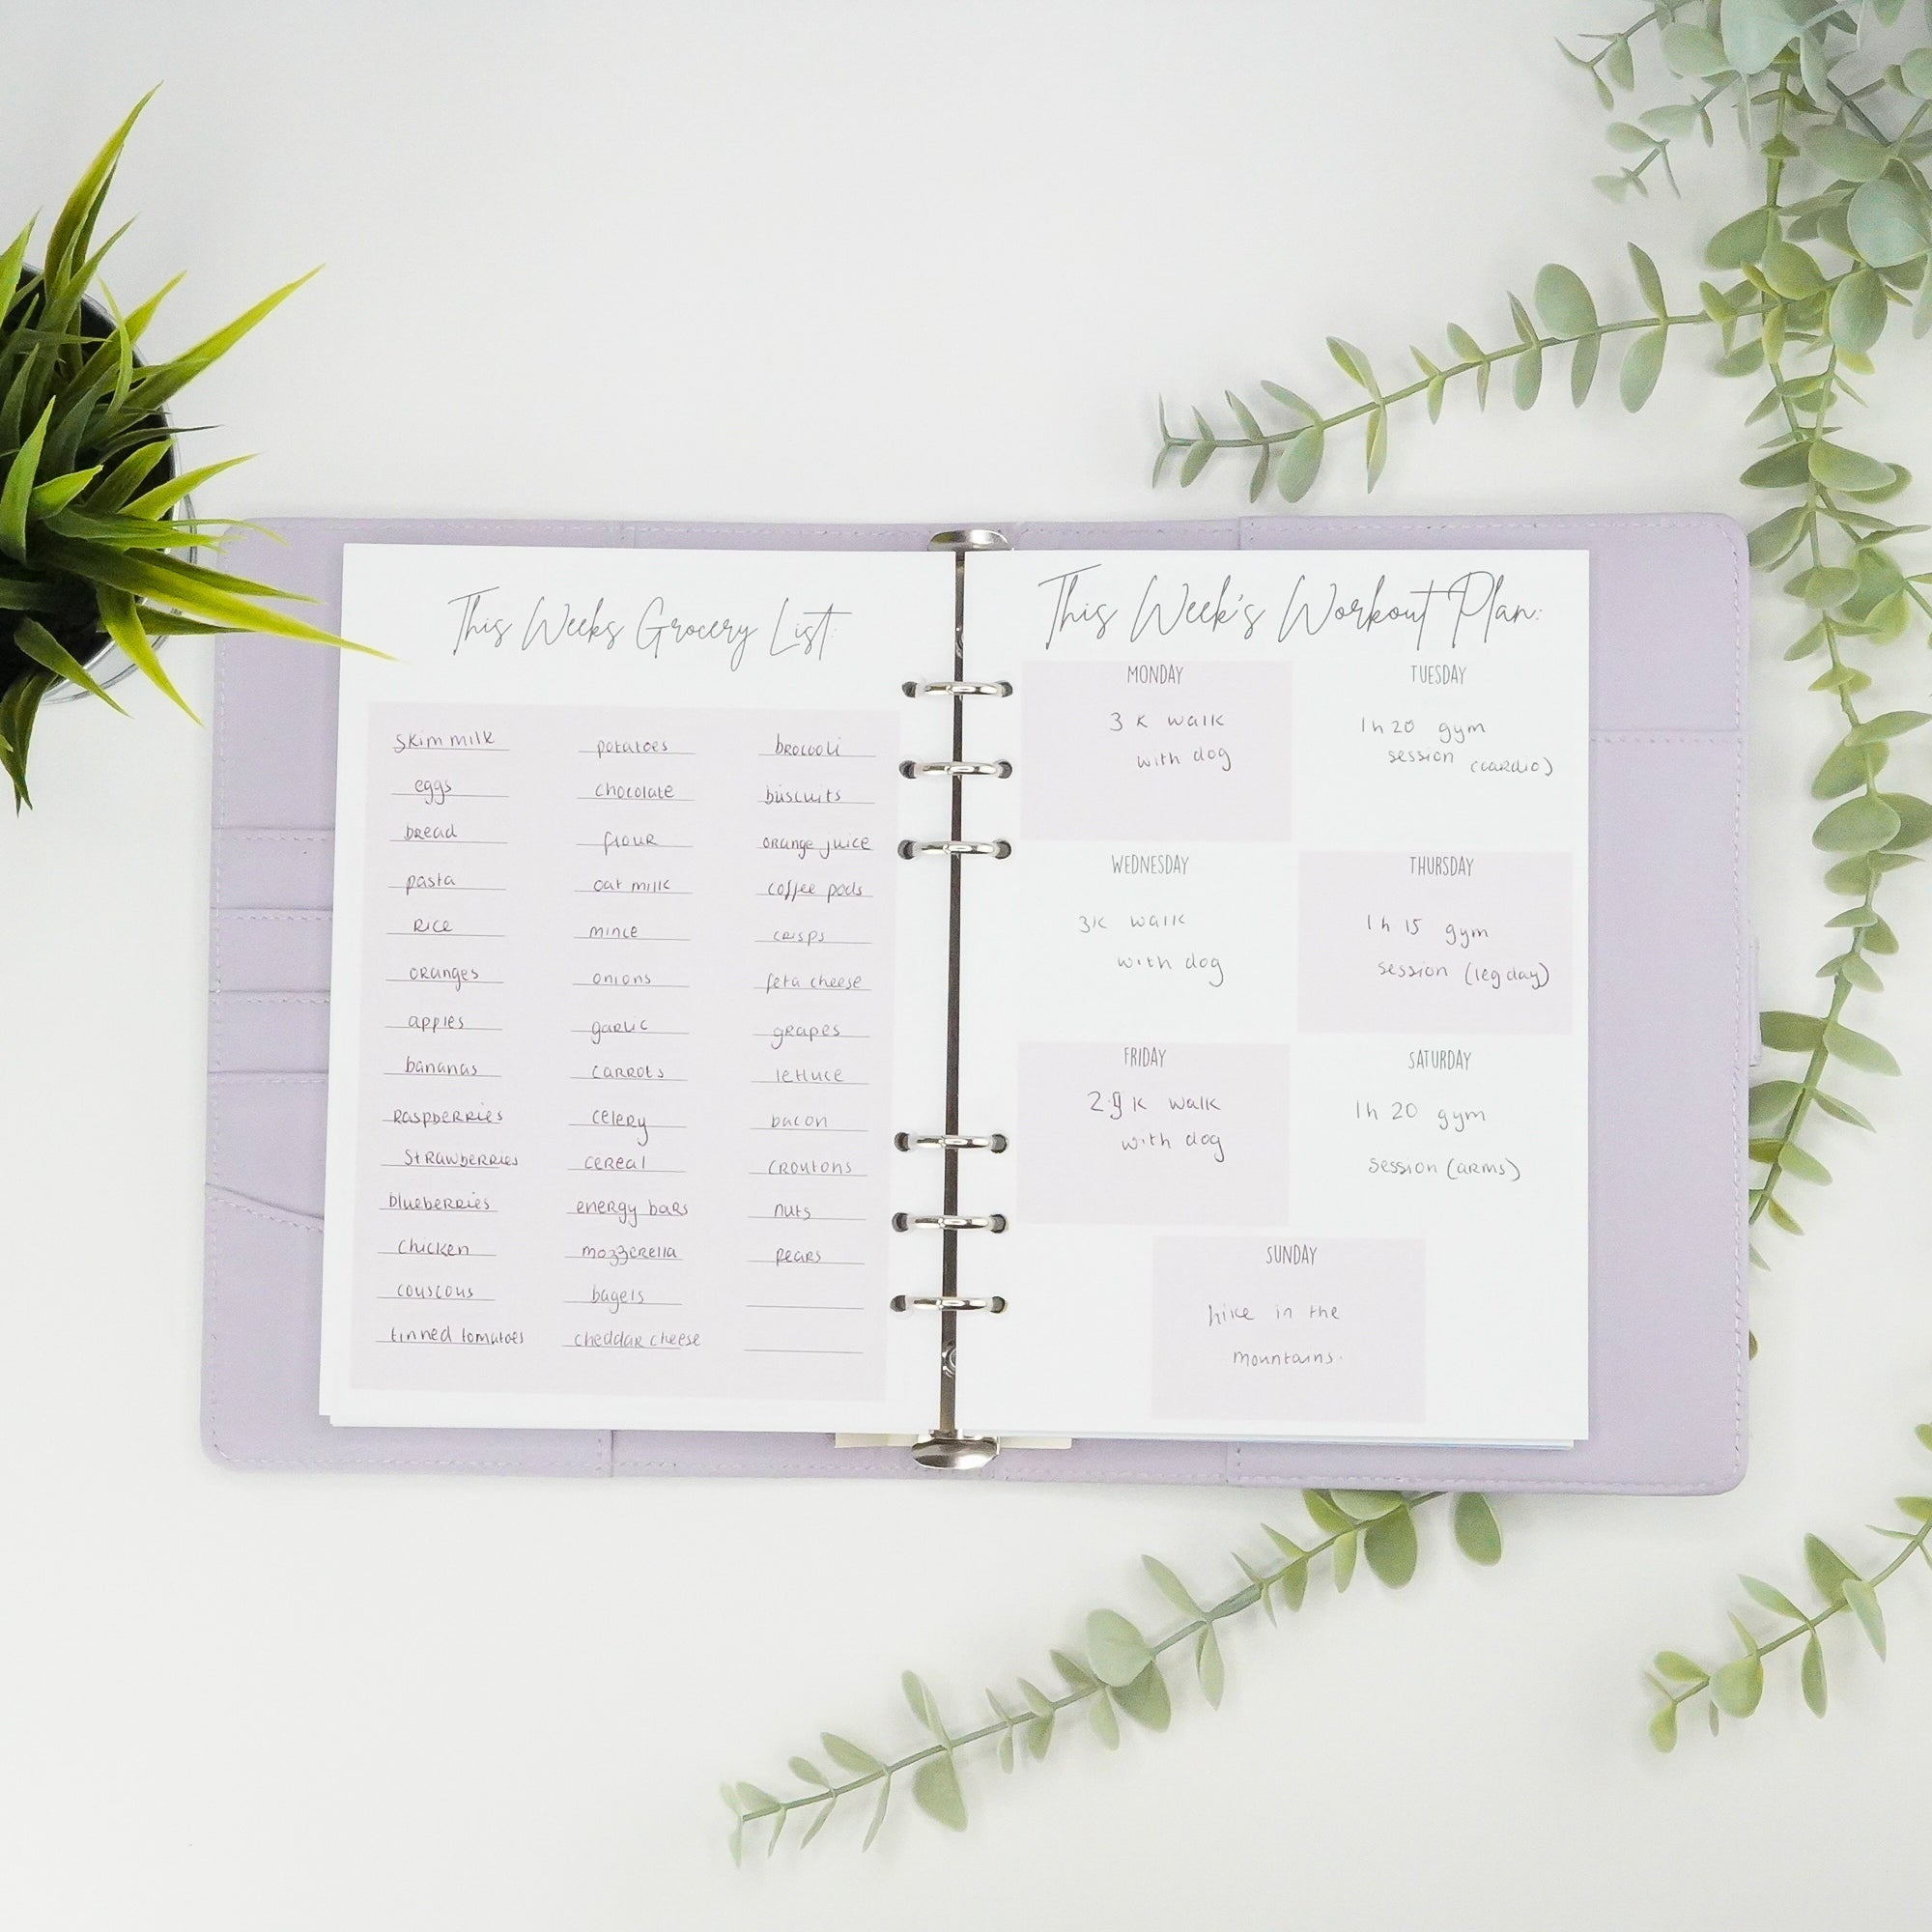 This Weeks Grocery List:
skim milk
eggs
bread
pasta
Rice
oranges
apples
bananas
Raspberries
Strawberries
blueberries
chicken
couscous
tinned tomatoes
potatoes
chocolate
flour
oat milk
mince
onions
garlic
carrots
celery
cereal
energy bars
mozzerella
bagels
cheddar cheese
broccoli
biscuits
orange juice
coffee pods
crisps
feta cheese
grapes
lettuce
bacon
croutons
nuts
pears
This Week's Workout Plan:
MONDAY
3 K walk
with dog
TUESDAY
1h 20 gym
session (cardio)
WEDNESDAY
3K walk
with dog
THURSDAY
1h 15 gym
session (leg day)
FRIDAY
2.9 K walk
with dog
SATURDAY
1h 20 gym
session (arms)
SUNDAY
hike in the
mountains.